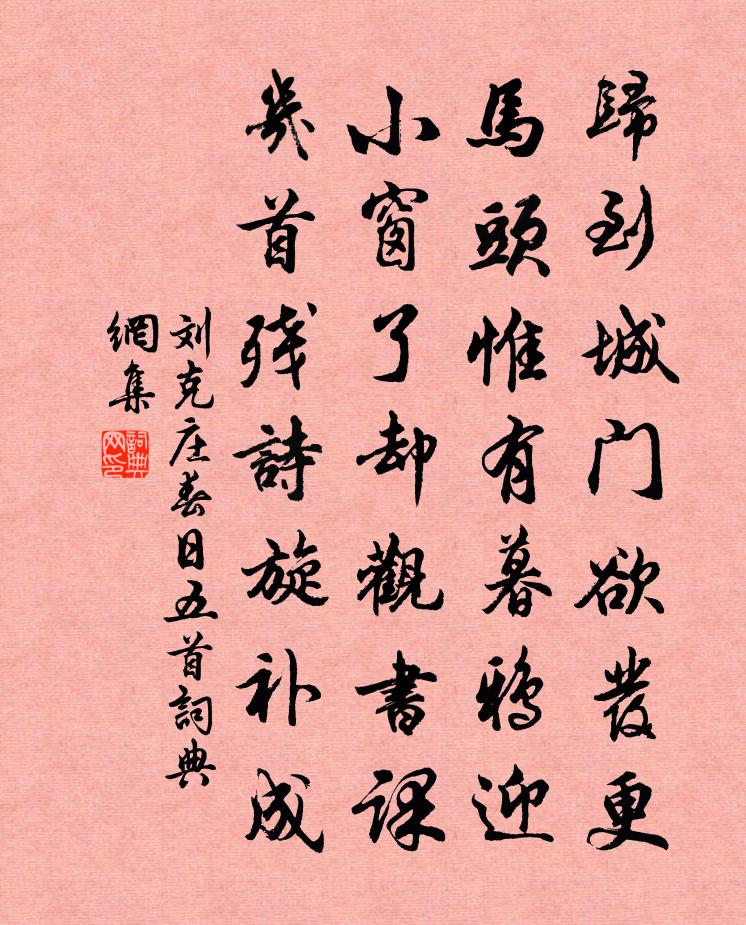 歸到城門欲發更
馬頭惟有暮鴉迎
小窗了却觀書課
幾首殘詩旋补成
刘克庄春日五首詞典
網集
詞典
网印